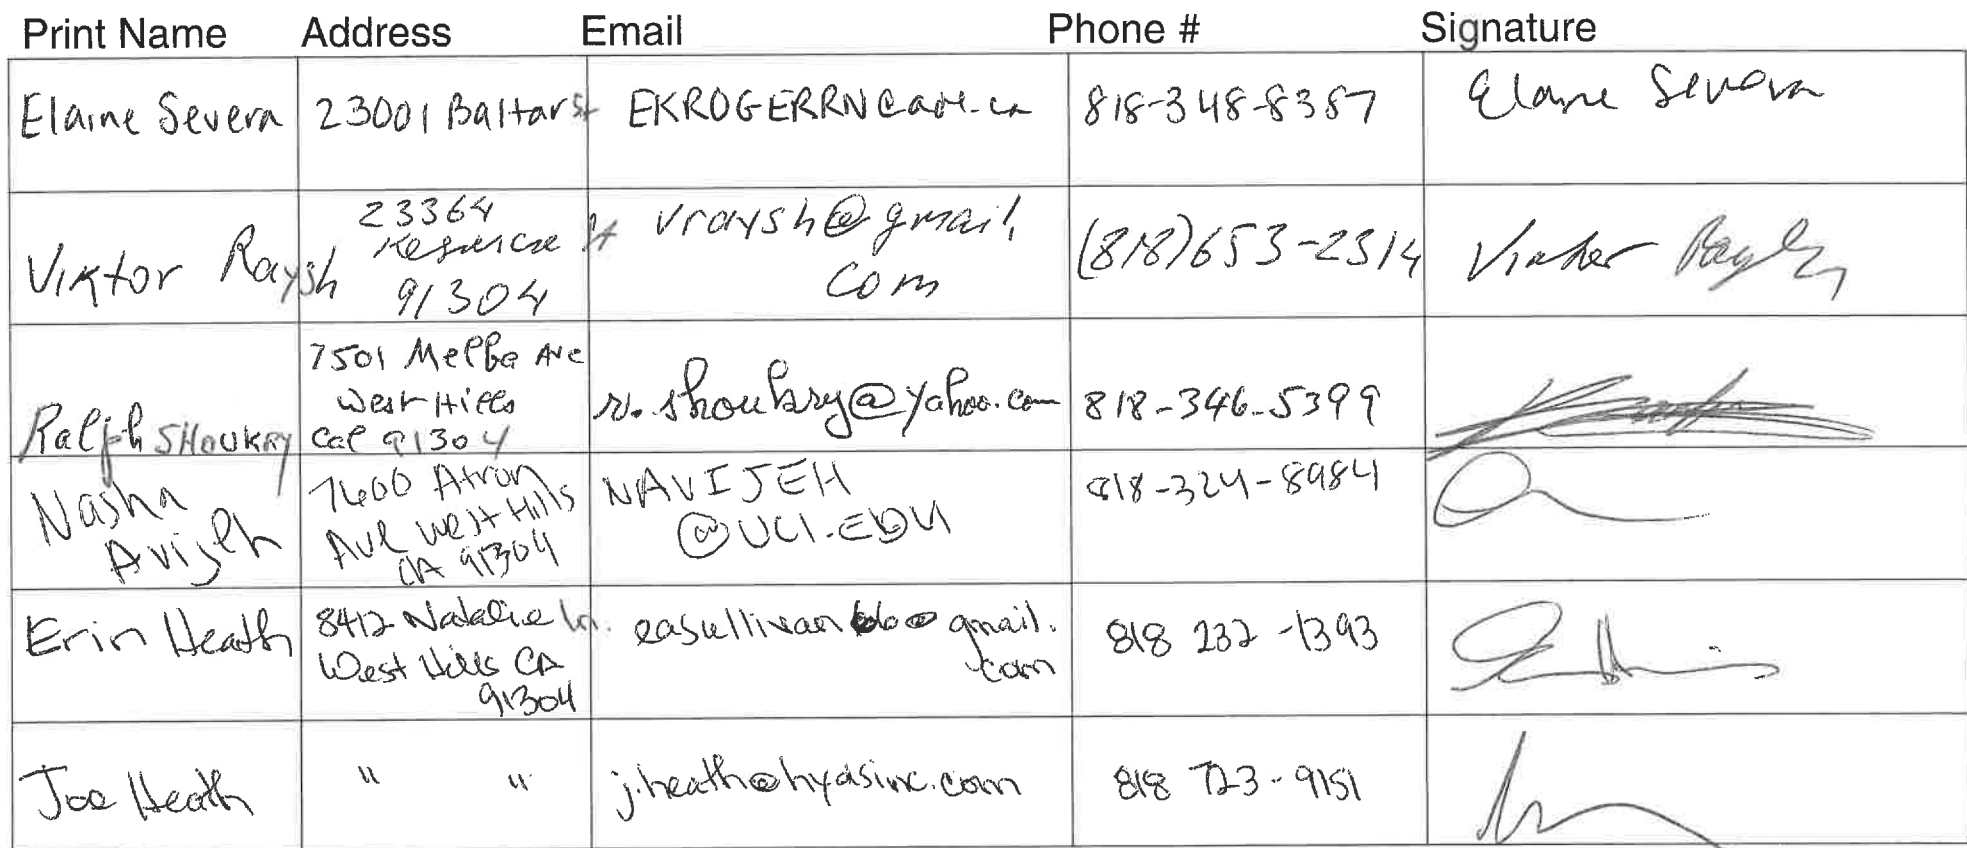 Print Name Address Email Phone # Signature
Elaine Severa 23001 Baltar St EKROGERRN@aol.com 818-348-8387 Elaine Severa
Viktor Raysh 23364 St 91304 vraysh@gmail.com (818)653-2314 Viktor Raysh
Ralph SHOUKRY 7501 Melba Ave West Hills Cal 91304 r.shoukry@yahoo.com 818-346-5399
Nasha Avijeh 7600 Atron Ave West Hills CA 91304 NAVIJEH@UCI.EDU 818-324-8984
Erin Heath 8412 Natalie Ln. West Hills CA 91304 gmail.com 818 232-1393
Joe Heath " " j.heath@hydsinc.com 818 723-9151